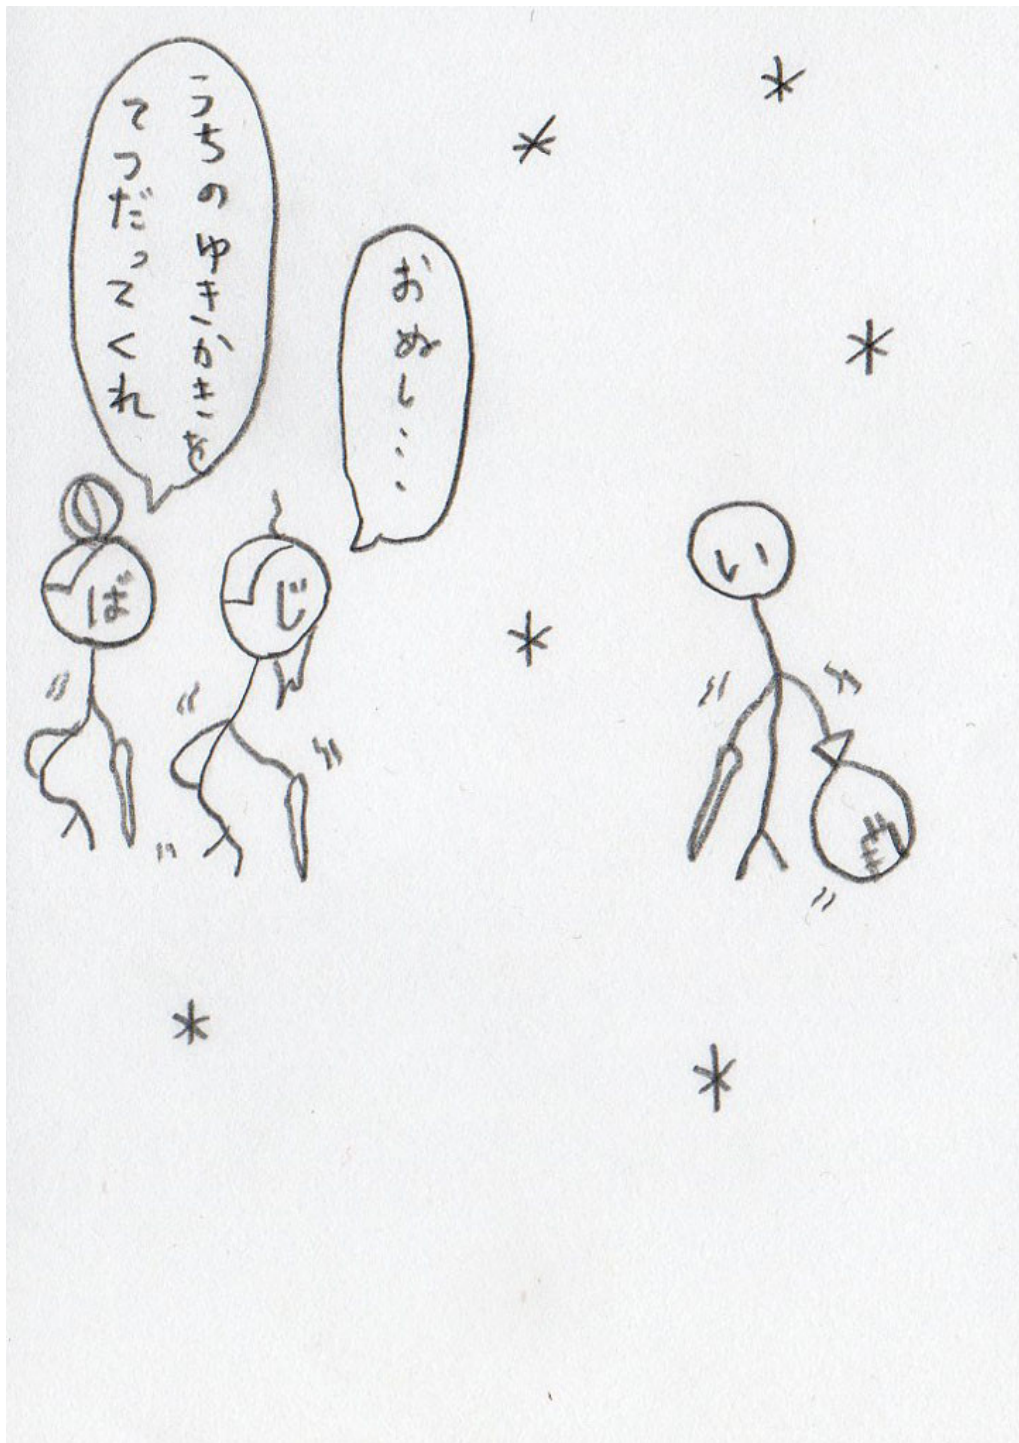 おぬし…
うちのゆきかきを
てつだってくれ
ば
じ
い